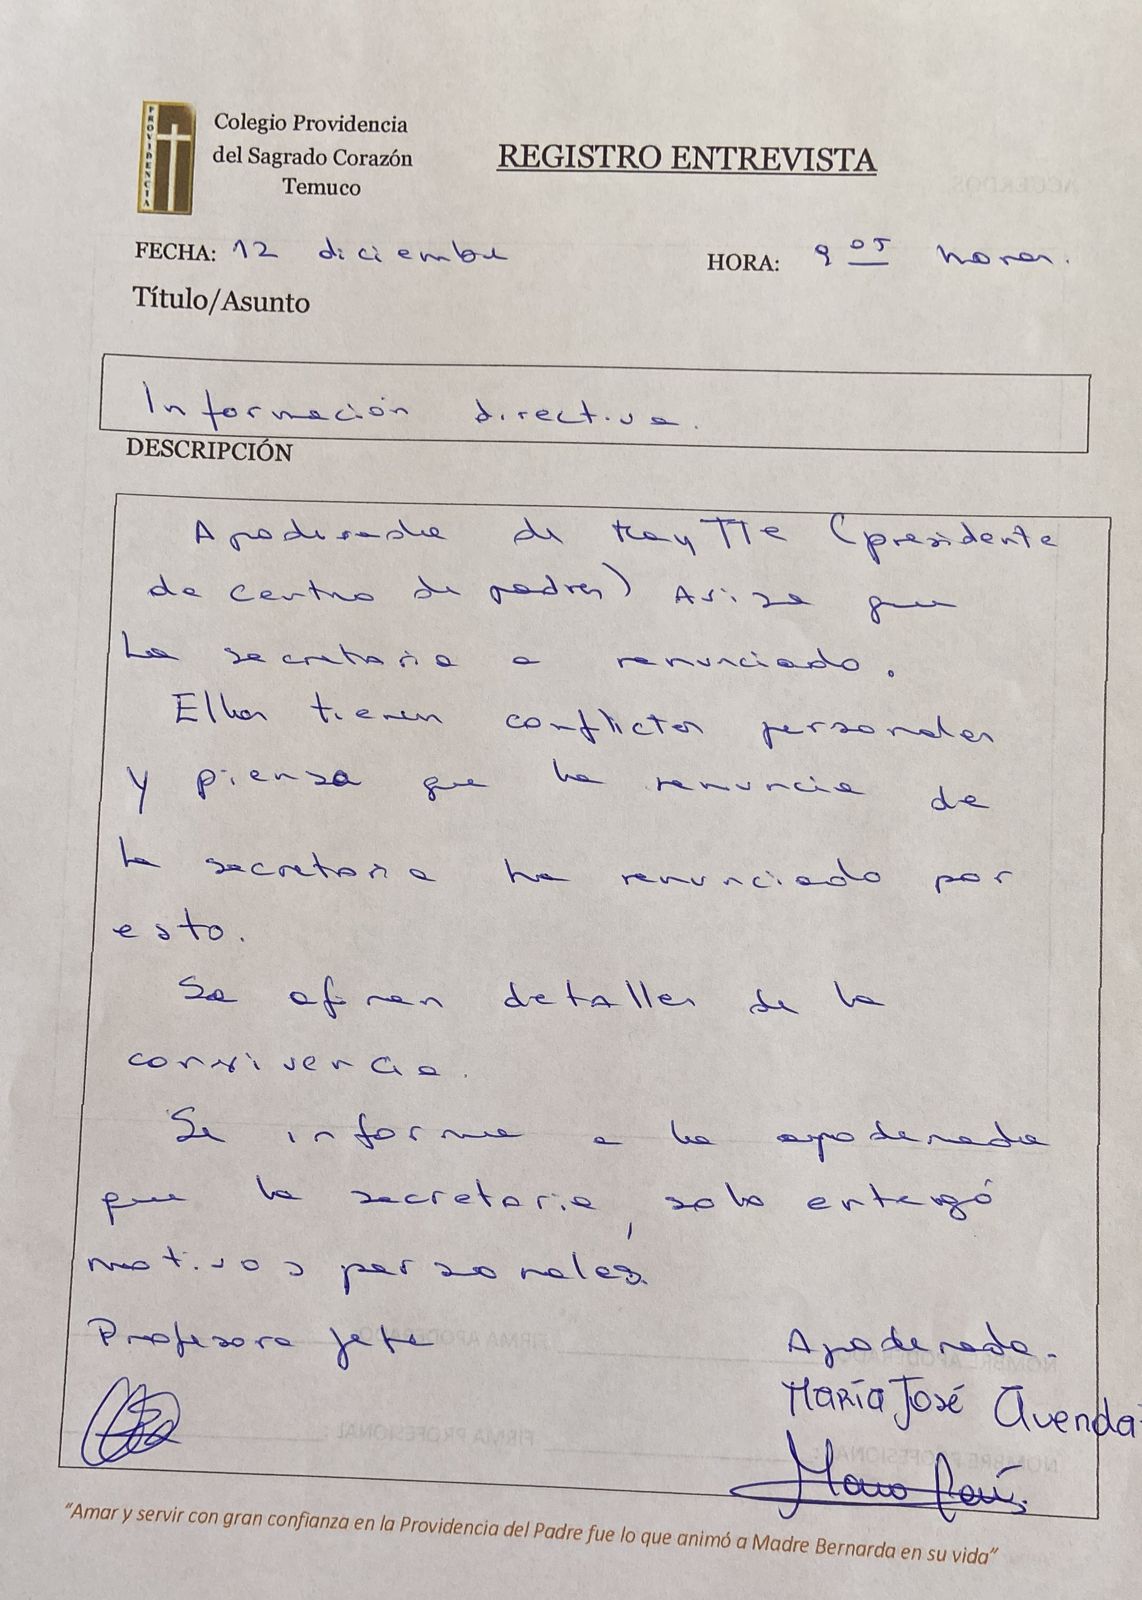 PROVIDENCIA
Colegio Providencia
del Sagrado Corazón
Temuco
REGISTRO ENTREVISTA
FECHA: 12 diciembre
HORA: 9 05 horas.
Título/Asunto
Información directiva.
DESCRIPCIÓN
Apoderada de Keytte (presidente
de centro de padres) Avisa que
La secretaria a renunciado.
Ellas tienen conflictos personales
y piensa que la renuncia de
la secretaria ha renunciado por
esto.
Se afinan detalles de la
convivencia.
Se informa a la apoderada
que la secretaria, solo entregó
motivos personales.
Profesora jefe
Apoderada.
María José Avenda
"Amar y servir con gran confianza en la Providencia del Padre fue lo que animó a Madre Bernarda en su vida"